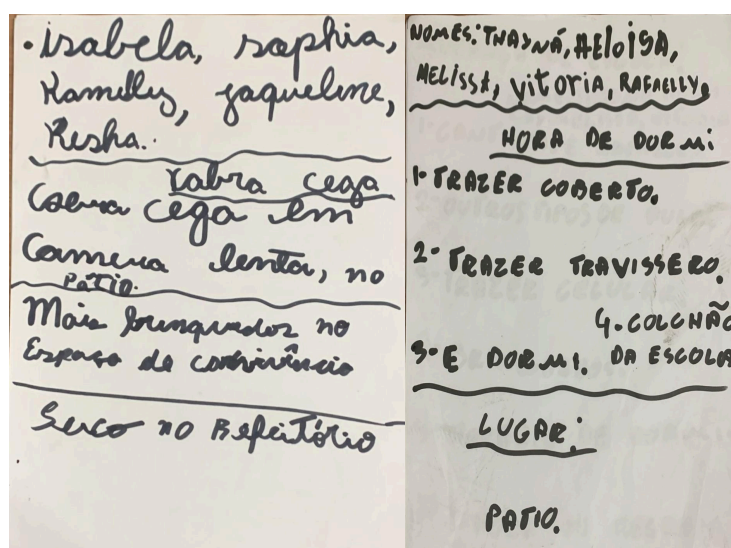 • isabela, sophia,
Kamilly, jaqueline,
Kesha..
Cabra cega
Cabra cega em
Camera lenta, no
Pátio.
Mais brinquedos no
Espaço de convivência
Suco no Refeitório
NOMES: THAYNÁ, HELOISA,
MELISSA, VITORIA, RAFAELLY.
HORA DE DORMI
1- TRAZER COBERTO.
2- TRAZER TRAVISSERO.
4. COLCHÃO
3- E DORMI. DA ESCOLA
LUGAR:
PATIO.